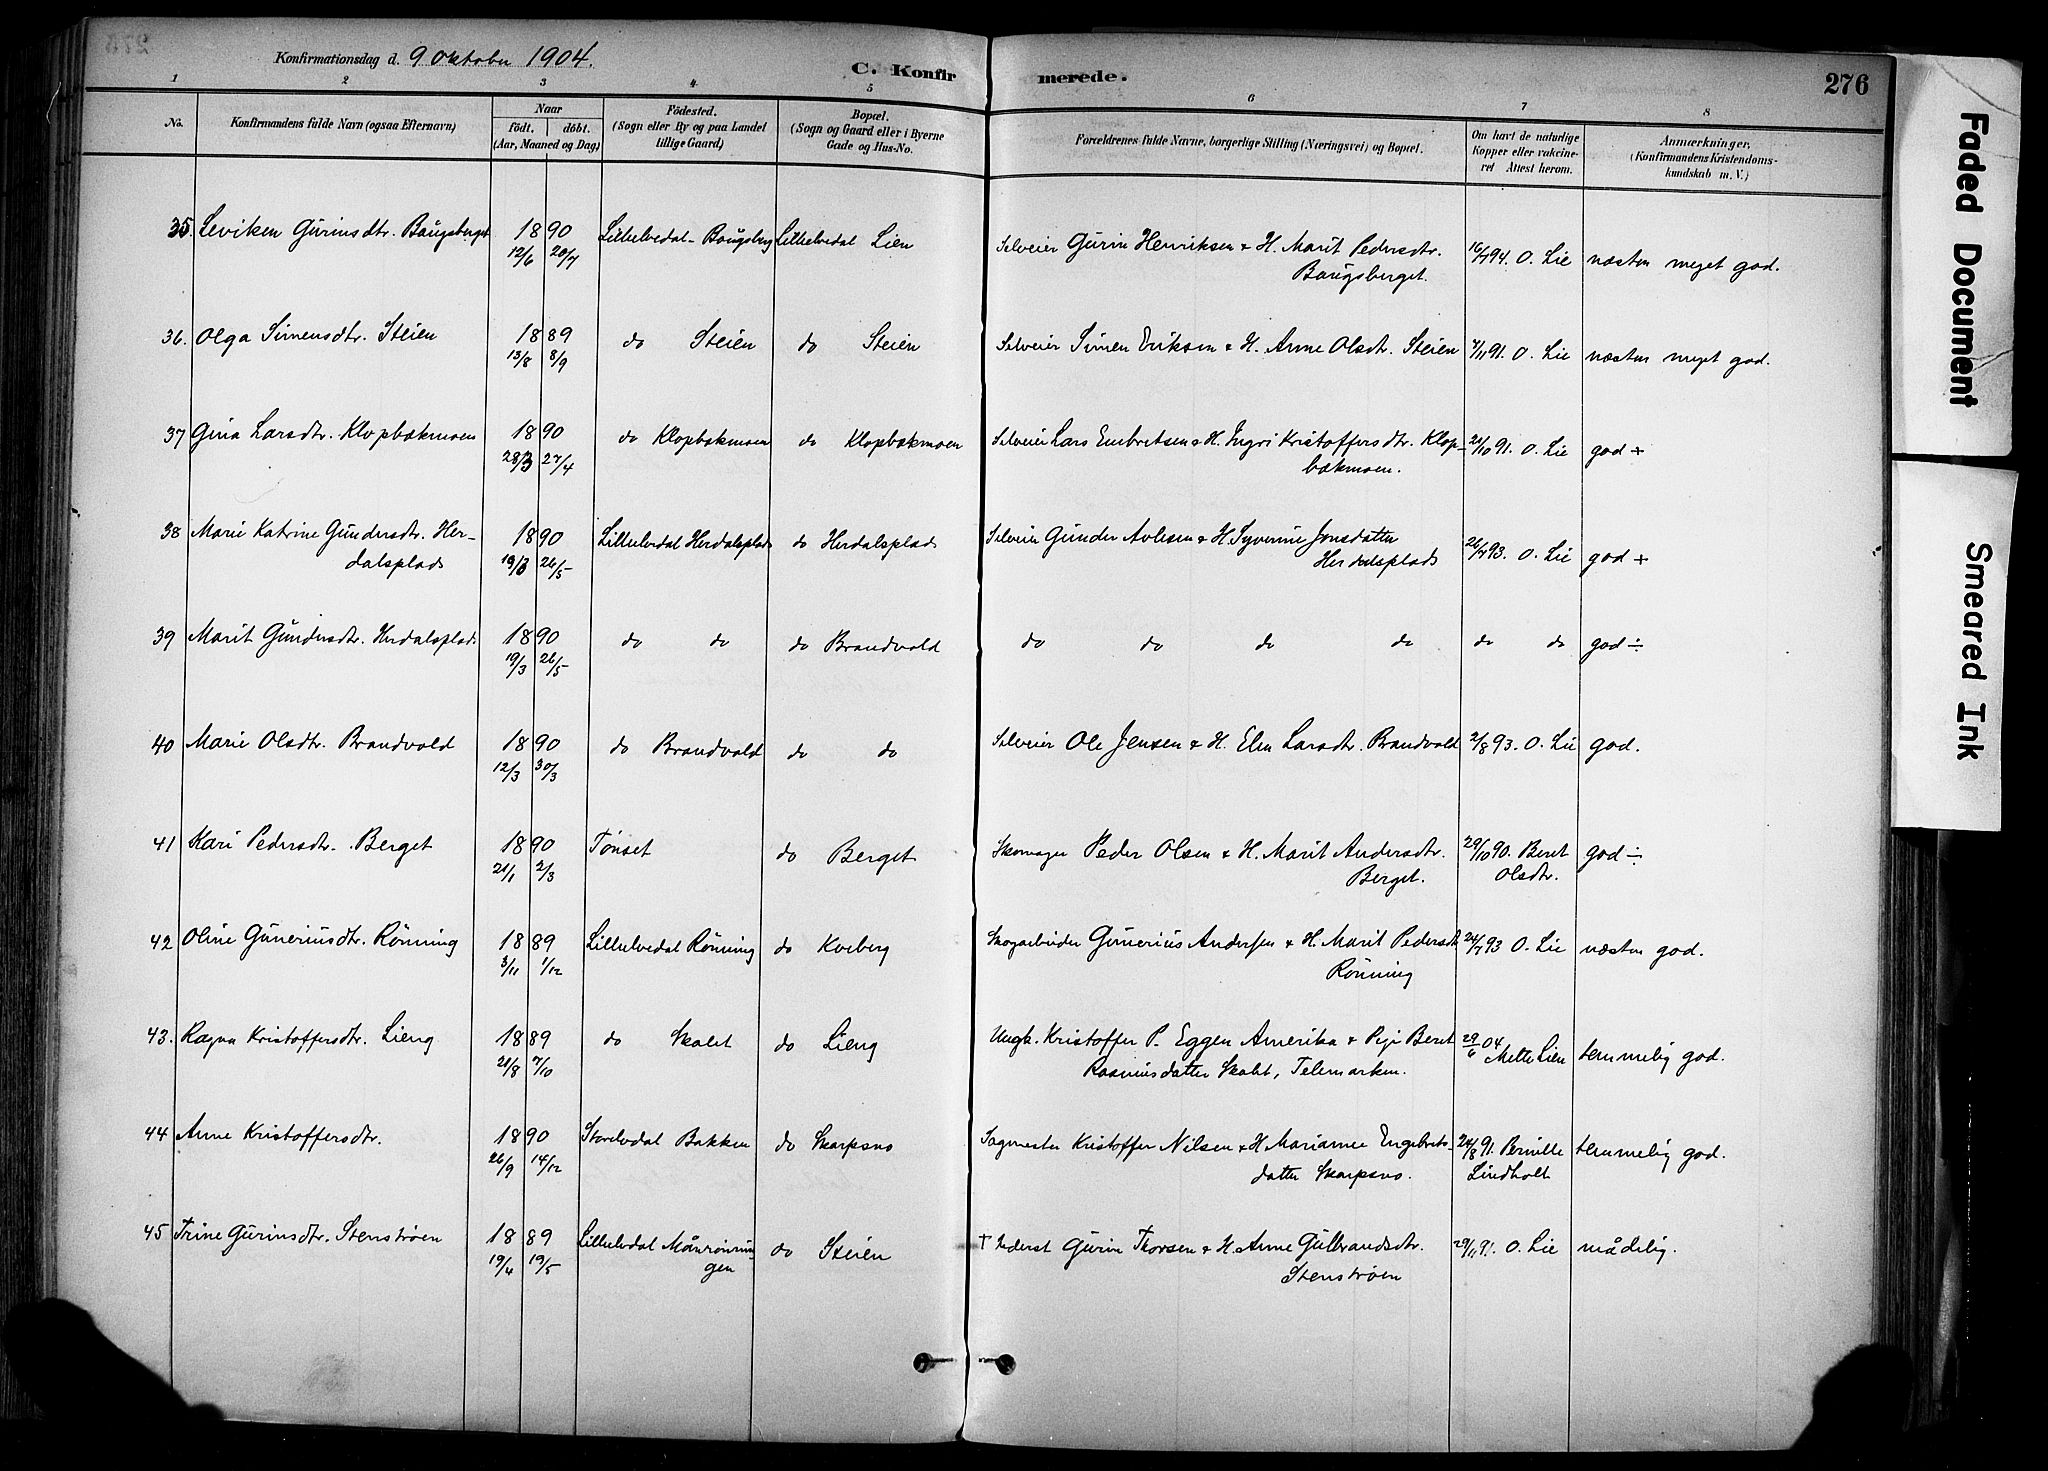 Konfirmationsdag d. 9 Oktober 1904.
C. Konfirmerede.
276
1 2 3 4 5 6 7 8
No. Konfirmandens fulde Navn (ogsaa Efternavn) Naar født. døbt. (Aar, Maaned og Dag) Fødested. (Sogn eller By og paa Landet tillige Gaard) Bopæl. (Sogn og Gaard eller i Byerne Gade og Hus-No. Forældrenes fulde Navne, borgerlige Stilling (Næringsvei) og Bopæl. Om havt de naturlige Kopper eller vakcineret Attest herom. Anmærkninger. (Konfirmandens Kristendomskundskab m. V.)
35. Leviken Gurinsdtr. Baugsberget 1890 12/6 20/7 Lilleelvedal Baugsberg Lilleelvedal Lien Selveier Gurin Henriksen & H. Marit Pedersdtr. 16/7 94. O. Lie næsten meget god.
Baugsberget.
36. Olga Simensdtr. Steien 1889 13/8 8/9 do Steien do Steien Selveier Simen Eriksen & H. Anne Olsdtr. Steien 7/11 91. O. Lie næsten meget god.
37 Gina Larsdtr. Klopbækmoen 1890 28/3 27/4 do Klopbækmoen do Klopbækmoen Selveier Lars Embretsen & H. Ingri Kristoffersdtr. Klop- 21/10 91. O. Lie god +
bækmoen.
38 Marie Katrine Gundersdtr. Her- 1890 19/3 26/5 Lilleelvedal Herdalsplads do Herdalsplads Selveier Gunder Avlesen & H. Syverine Jonsdatter 26/7 93. O. Lie god +
dalsplads Herdalsplads
39 Marit Gundersdtr. Herdalsplads 1890 19/3 26/5 do do do Brandvold do do do do do do god ÷
40 Marie Olsdtr. Brandvold 1890 12/3 30/3 do Brandvold do do Selveier Ole Jensen & H. Elen Larsdtr. Brandvold 2/8 93. O. Lie god.
41 Kari Pedersdtr. Berget 1890 21/1 2/3 Tønset do Berget Skomager Peder Olsen & H. Marit Andersdtr. 29/10 90. Beret god ÷
Berget. Olsdtr.
42 Oline Guneriusdtr. Rönning 1889 3/11 1/12 Lilleelvedal Rönning do Kveberg Skogarbeider Gunerius Andersen & H. Marit Pedersdtr 24/7 93 O. Lie næsten god.
Rönning
43. Ragna Kristoffersdtr. Lieng 1889 21/8 7/10 do Skolet do Lieng Ungk. Kristoffer P. Eggen Amerika & Pige Beret 29/6 04 temmelig god.
Rasmusdatter Skolet, Telemarken. Mette Lien
44 Anne Kristoffersdtr. 1890 26/9 14/12 Storelvdal Bakken do Skarpsno Sagmester Kristoffer Nilsen & H. Marianne Engebrets- 24/8 91. Pernille temmelig god.
datter Skarpsno. Lindholt
45 Trine Gurinsdtr. Stenstrøen 1889 19/4 19/5 Lilleelvdal Månrönnin- do Steien † Inderst Gurin Thorsen & H. Anne Gulbrandsdtr. 29/11 91. O. Lie mådelig.
gen Stenstrøen
Faded Document
Smeared Ink